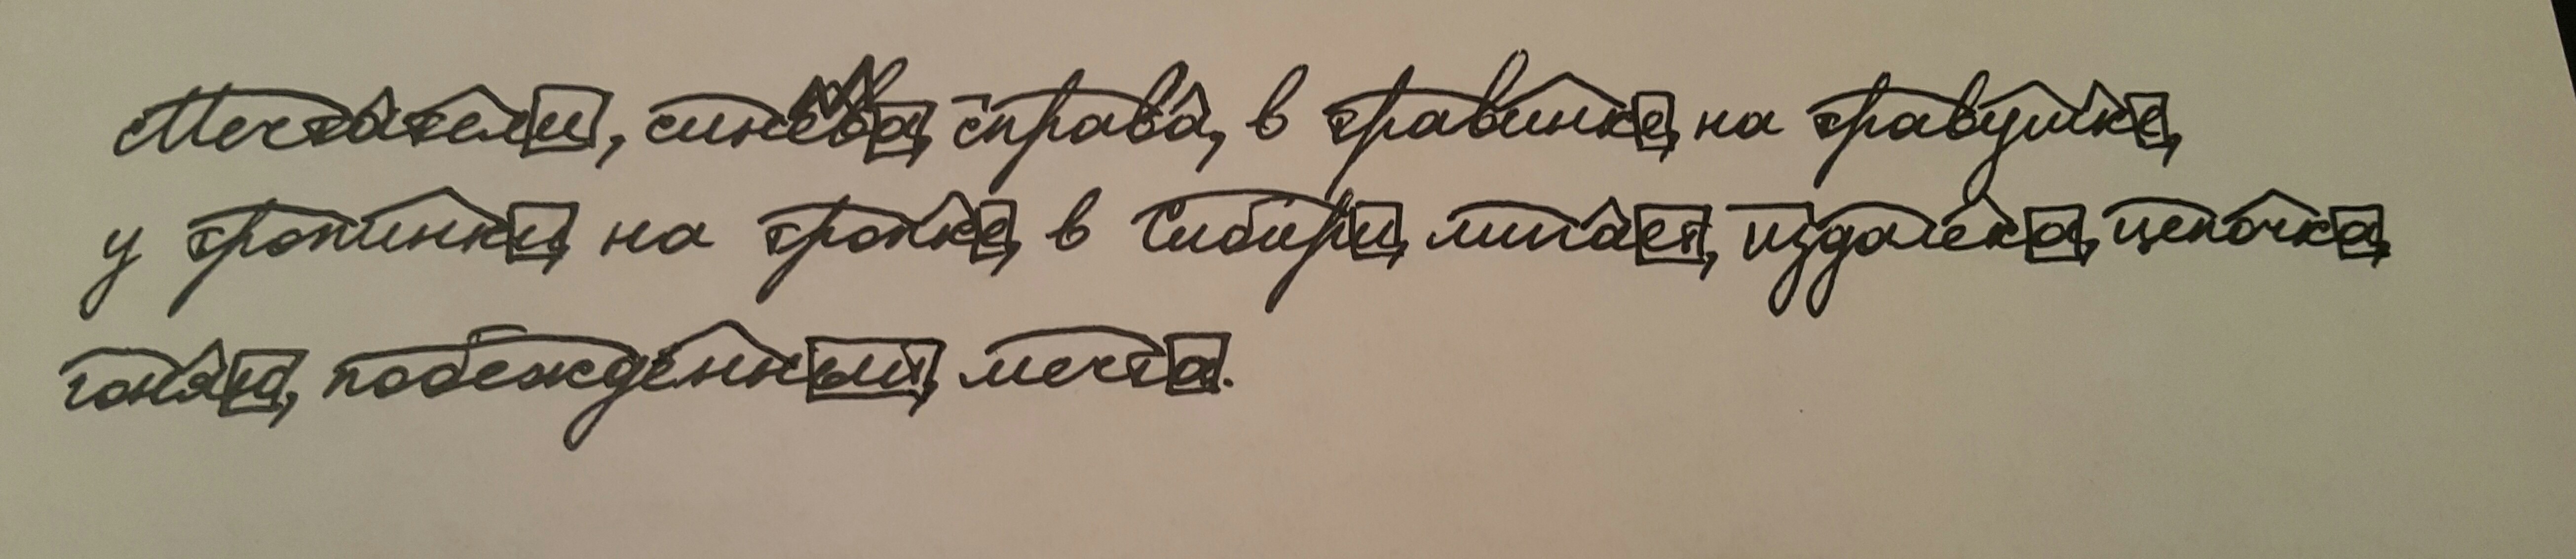 Мечтатели, синева, справа, в травинке, на травушке,
у тропинки, на тропке, в Сибири, мигает, издалека, цепочка,
гоняю, побеждённый, мечта.